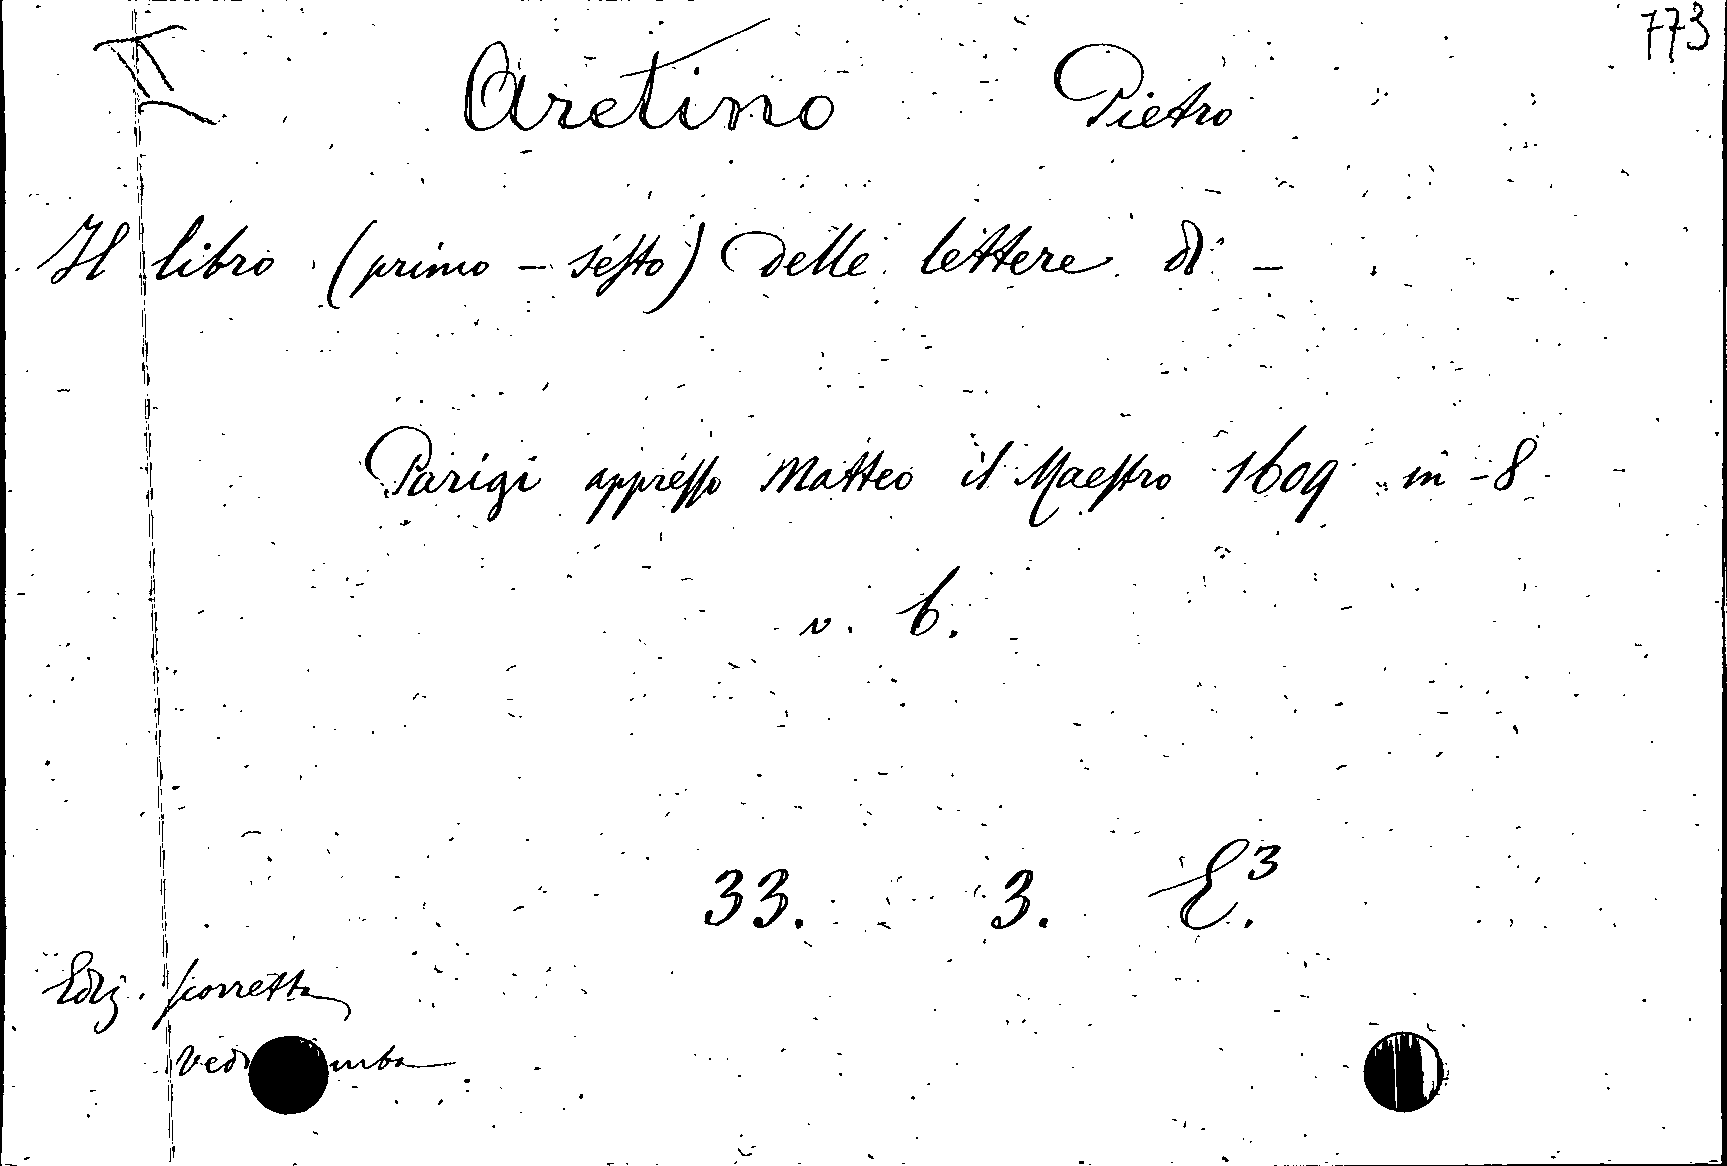 773
II
Aretino Pietro
Il libro (primo - sesto) delle lettere di -
Parigi appresso Matteo il Maestro 1609 in-8
v. 6.
33. 3. E³.
Ediz. scorretta
vedi